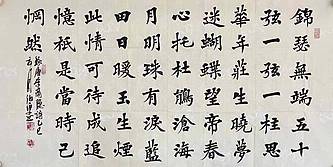 錦瑟無端五十
弦一弦一柱思
華年莊生曉夢
迷蝴蝶望帝春
心托杜鵑滄海
月明珠有淚藍
田日暖玉生煙
此情可待成追
憶祇是當時已
惘然